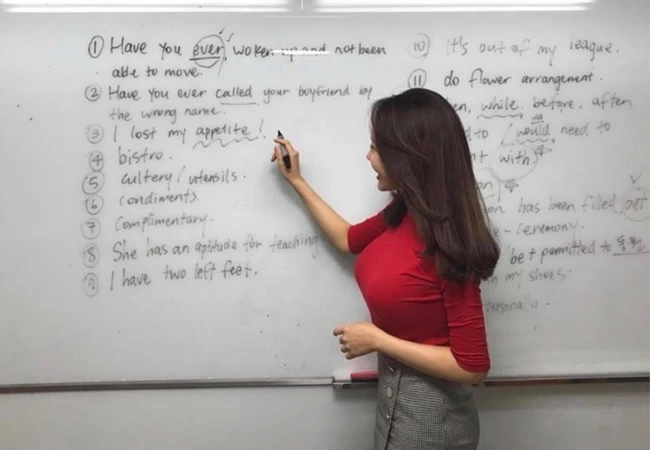 ① Have you ever woken up and not been
able to move.
② Have you ever called your boyfriend by
the wrong name.
③ I lost my appetite!
④ bistro.
⑤ cultery / utensils.
⑥ condiments.
⑦ Complimentary.
⑧ She has an aptitude for teaching
⑨ I have two left feet.
⑩ It's out of my league.
⑪ do flower arrangement.
while. before. after
would need to
with
has been filled out
- ceremony.
permitted to 동원
my shoes.